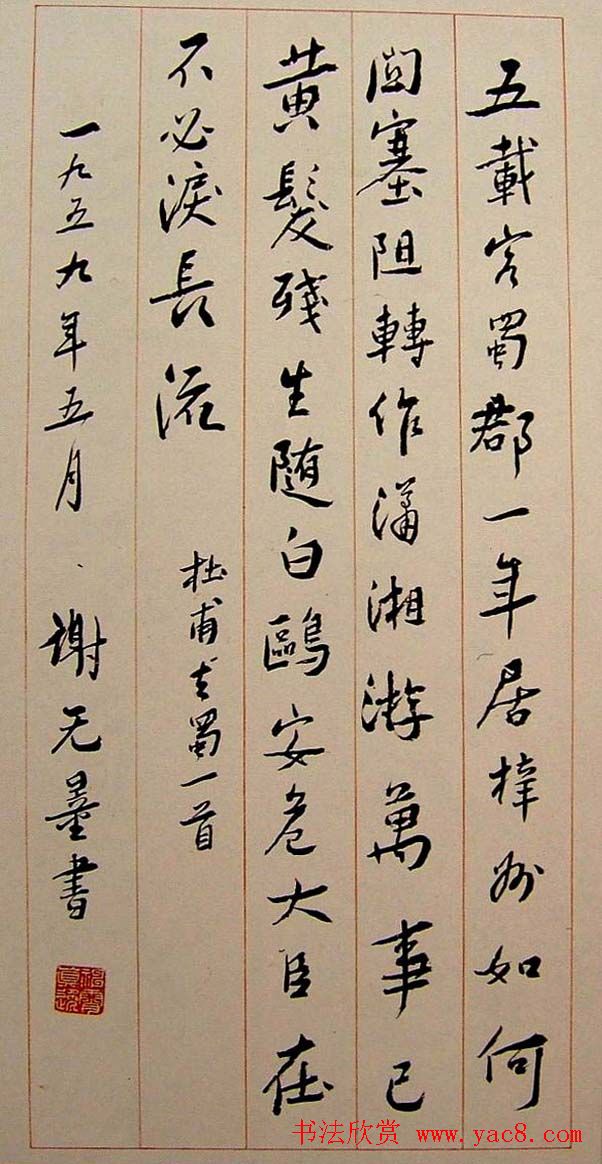 五載客蜀郡一年居梓州如何
関塞阻轉作瀟湘游萬事已
黃髮殘生随白鷗安危大臣在
不必淚長流
杜甫去蜀一首
一九五九年五月
谢无量書
书法欣赏 www.yac8.com